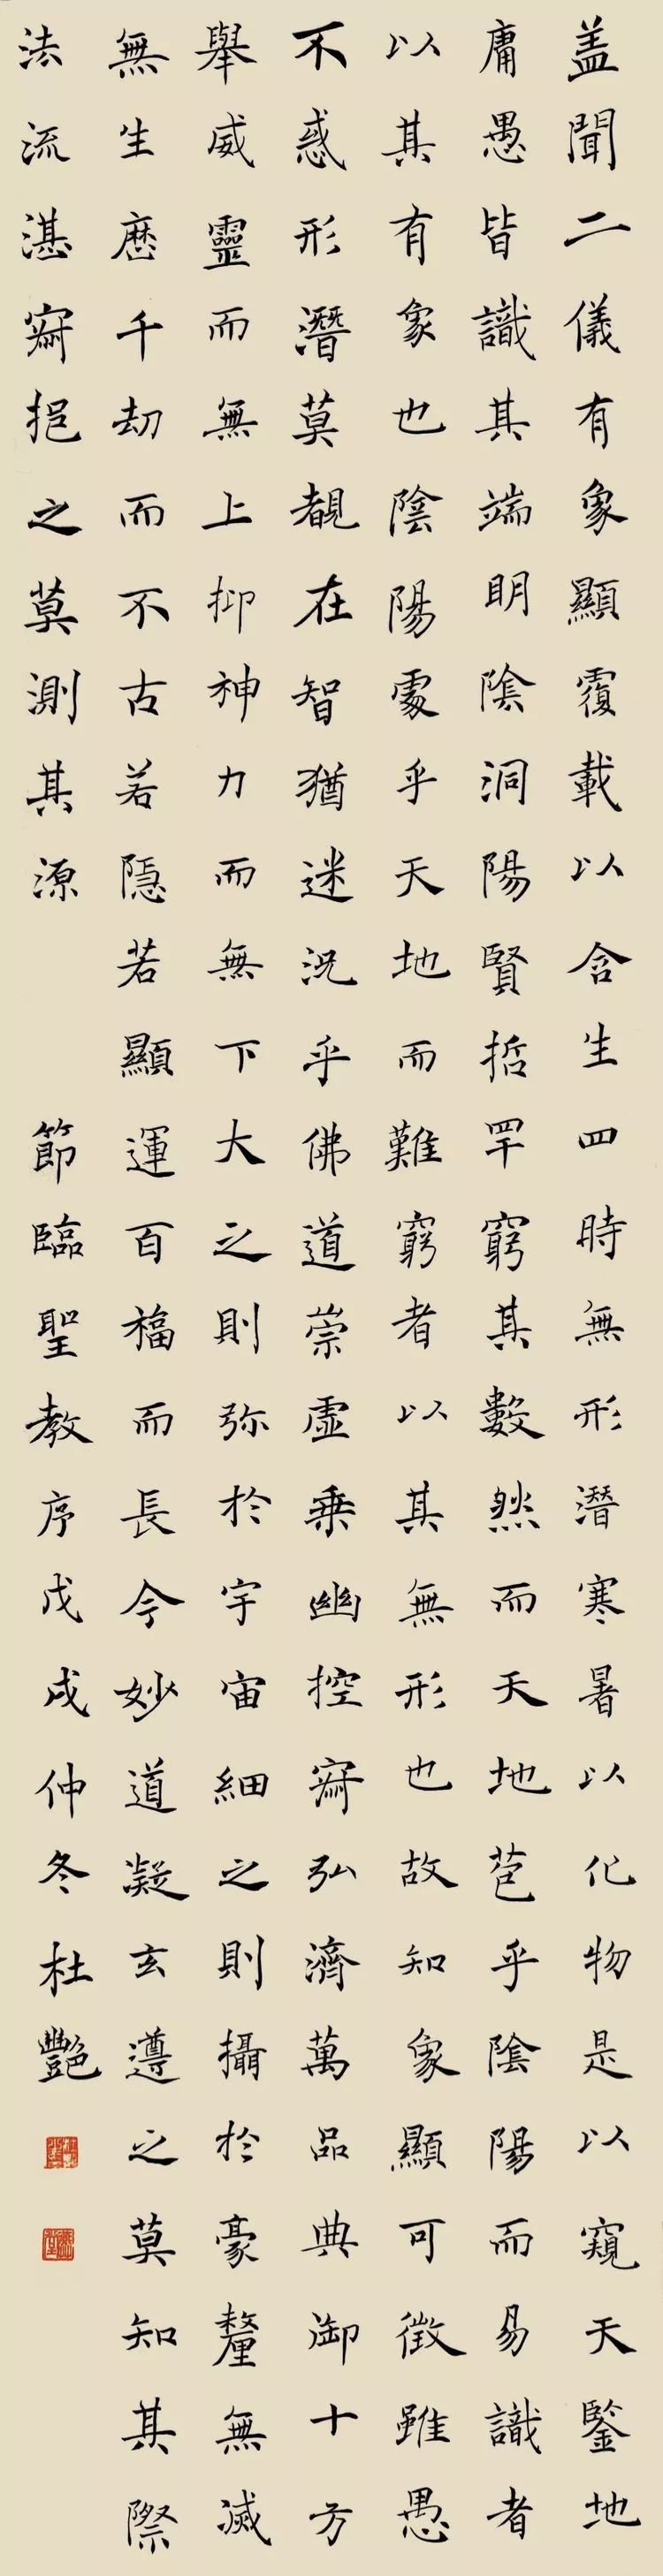 盖聞二儀有象顯覆載以含生四時無形潛寒暑以化物是以窺天鑒地
庸愚皆識其端明陰洞陽賢哲罕窮其數然而天地苞乎陰陽而易識者
以其有象也陰陽處乎天地而難窮者以其無形也故知象顯可徵雖愚
不惑形潛莫覩在智猶迷況乎佛道崇虛乗幽控寂弘濟萬品典御十方
舉威靈而無上抑神力而無下大之則弥於宇宙細之則攝於豪釐無滅
無生歷千劫而不古若隱若顯運百福而長今妙道凝玄遵之莫知其際
法流湛寂挹之莫測其源 節臨聖教序戊戌仲冬杜艷